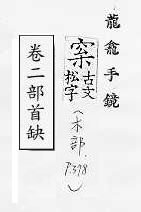 龍龕手鏡
案古文
松字
(木部.
P.378)
卷二部首缺